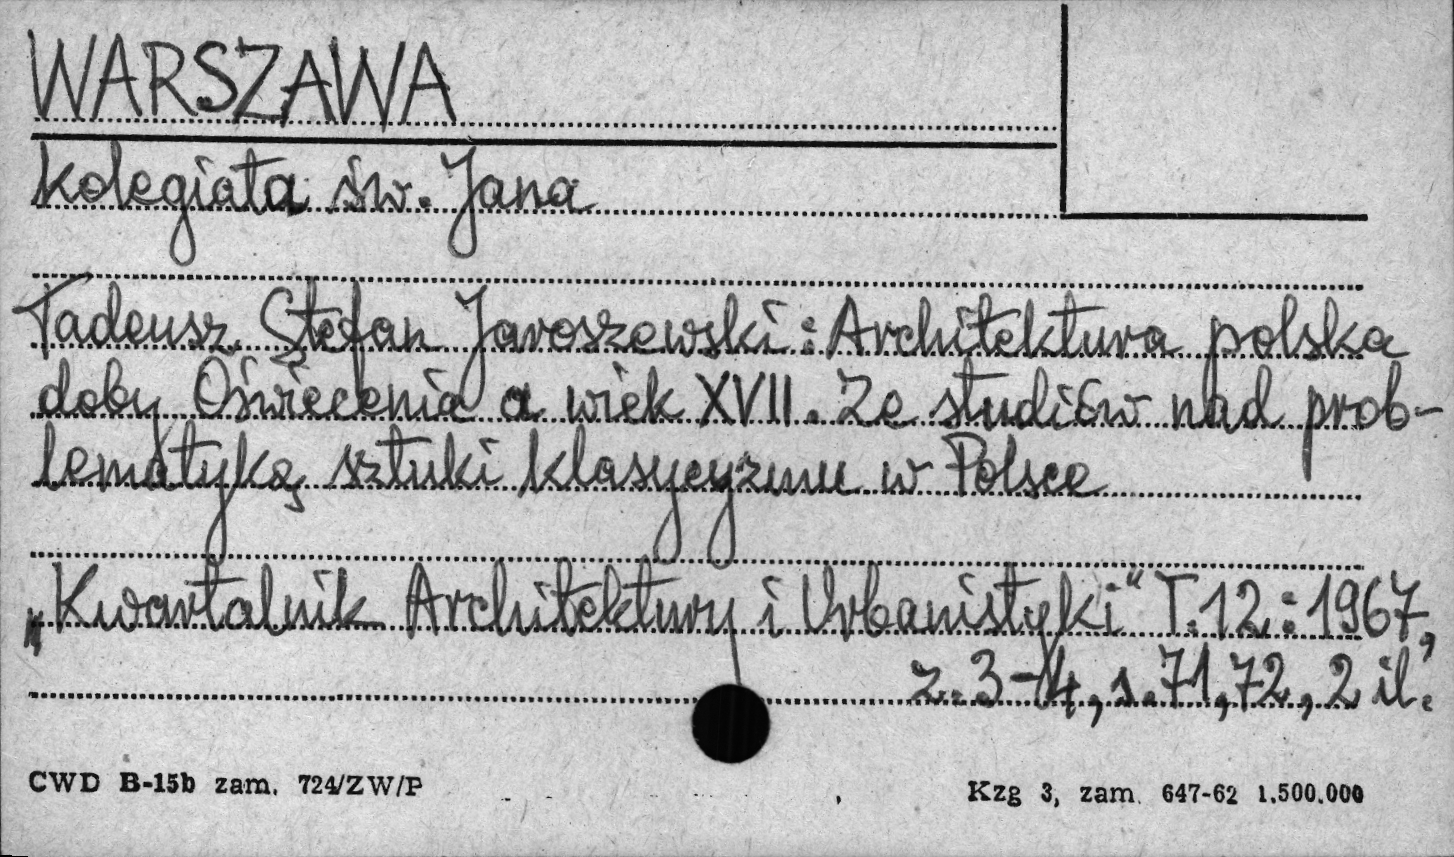 WARSZAWA
kolegiata św. Jana
Tadeusz Stefan Jaroszewski: Architektura polska
doby Oświecenia a wiek XVII. Ze studiów nad prob-
lematyką sztuki klasycyzmu w Polsce
„Kwartalnik Architektury i Urbanistyki" T. 12.: 1967,
z. 3-4, s. 71, 72, 2 il.
CWD B-15b zam. 724/ZW/P
Kzg 3, zam. 647-62 1.500.000